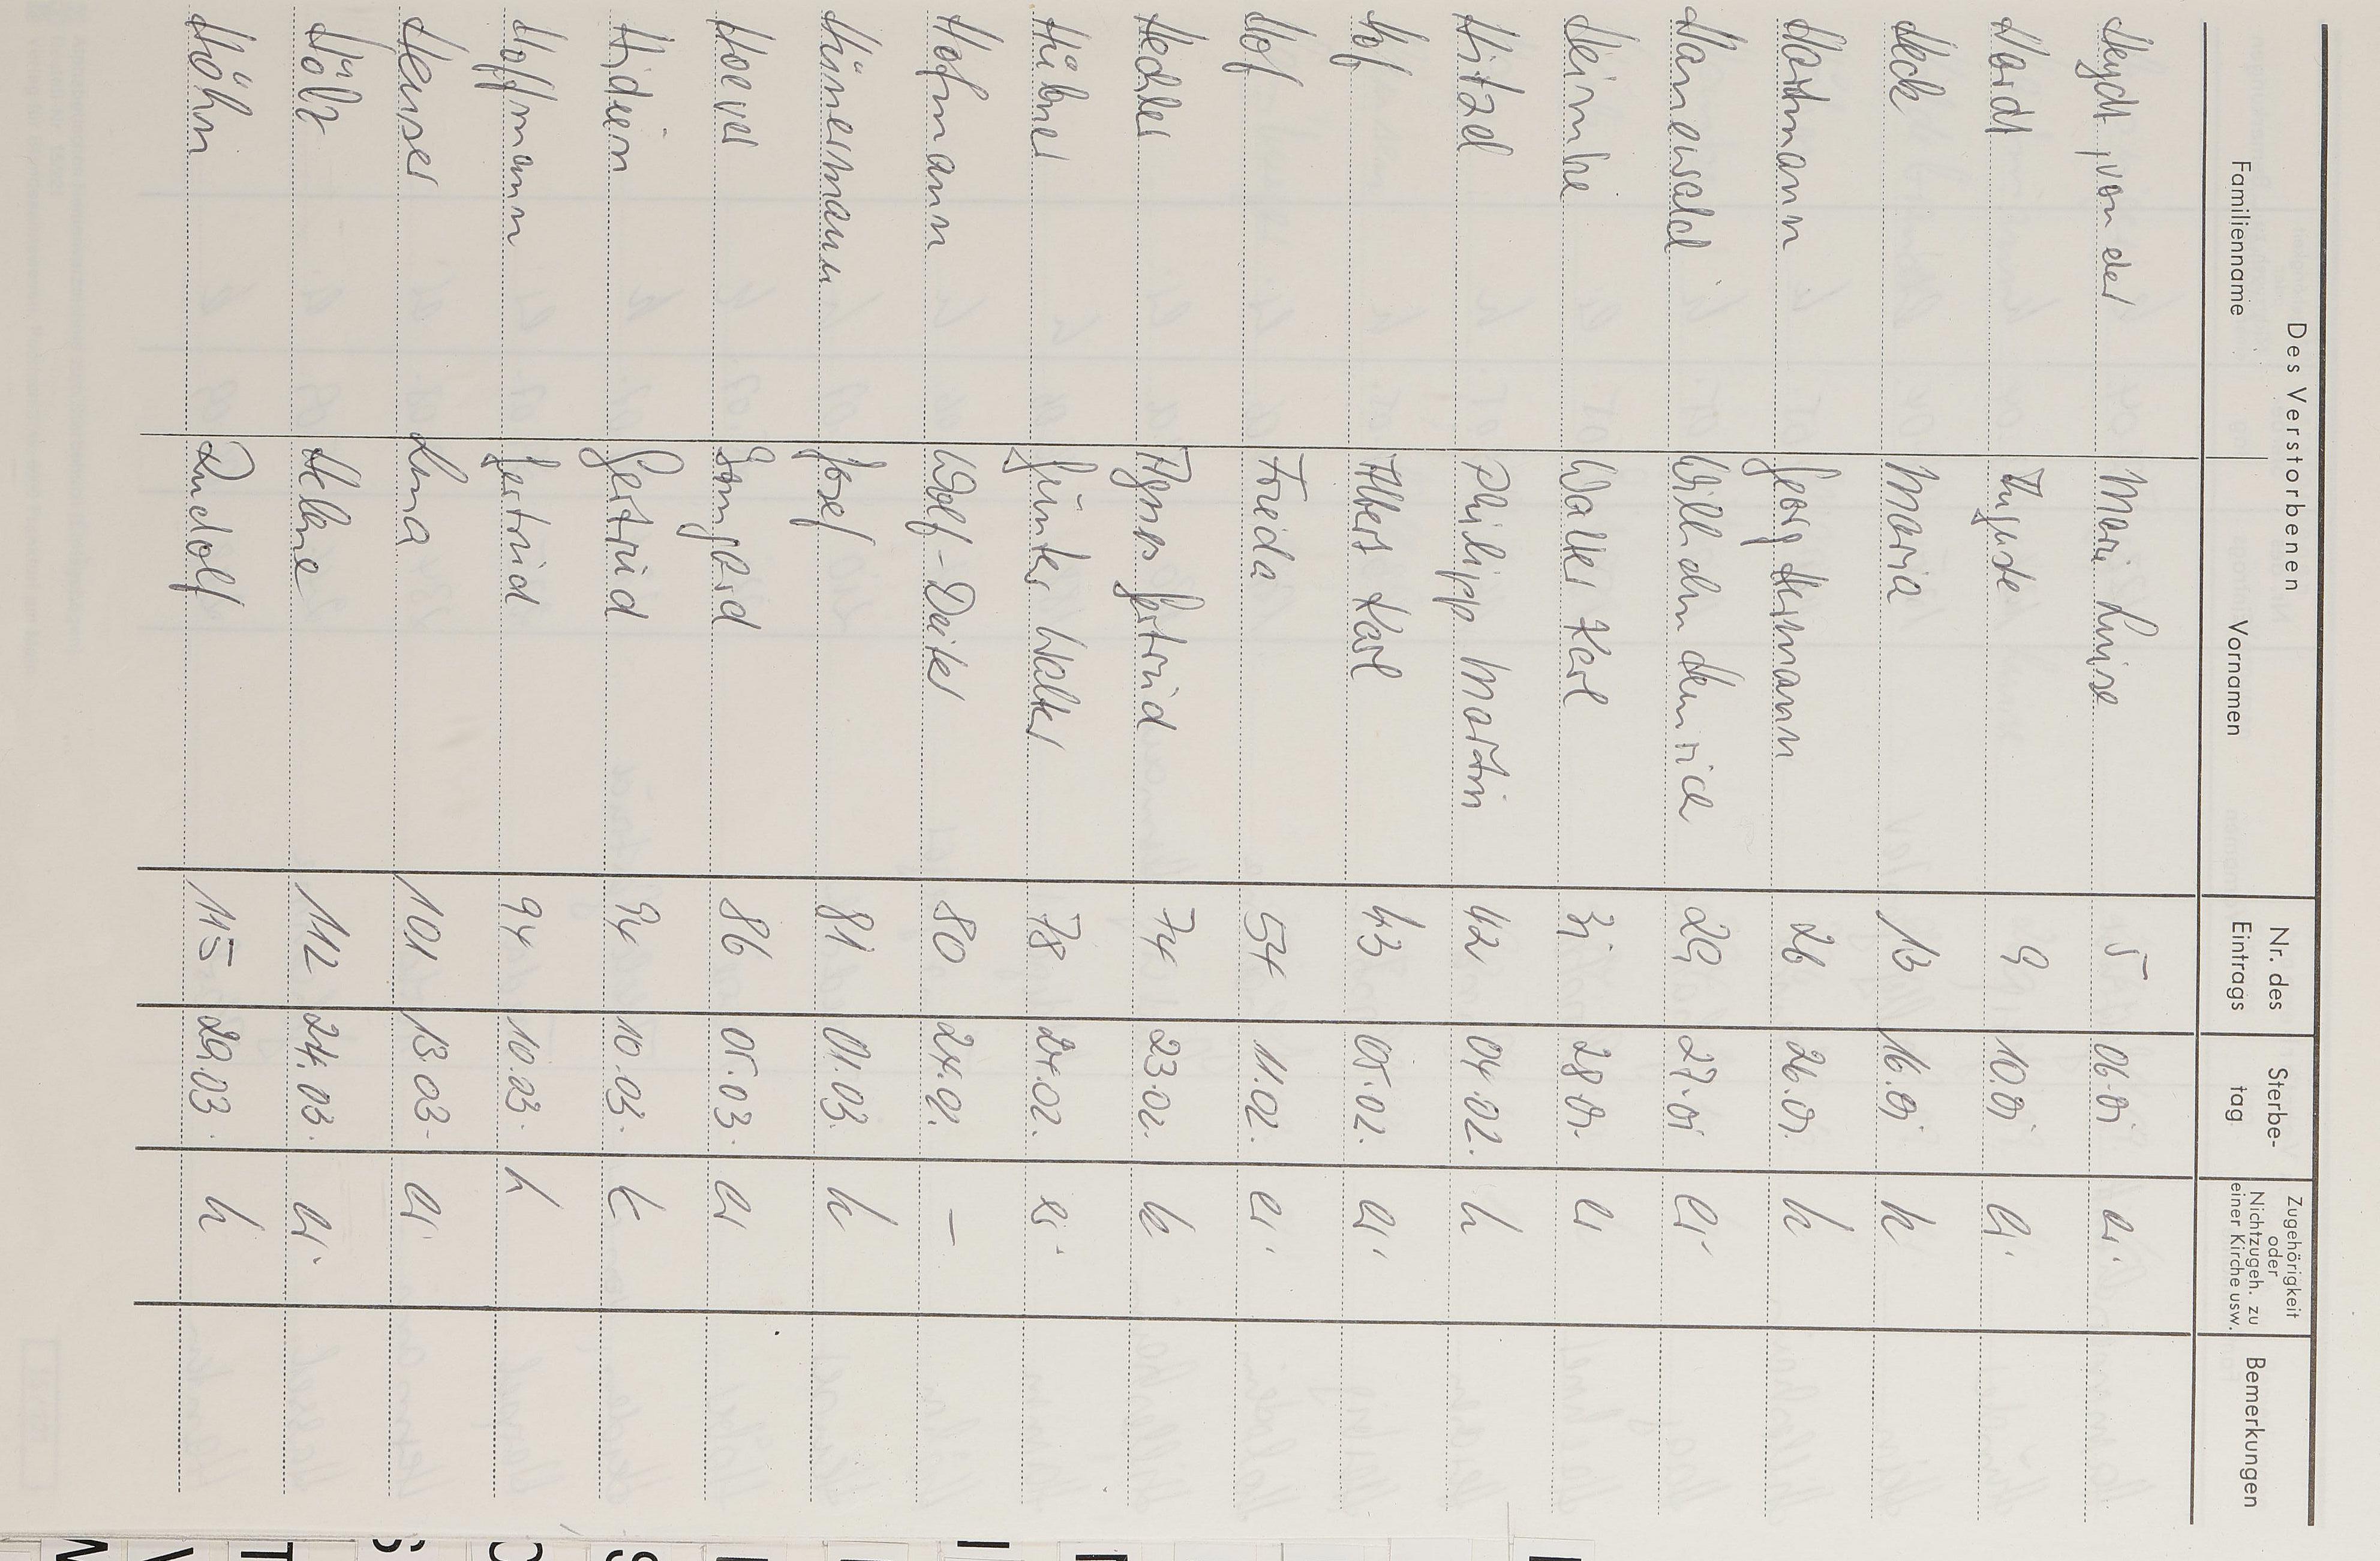 Des Verstorbenen
Familienname Vornamen Nr. des Eintrags Sterbe-tag Zugehörigkeit oder Nichtzugeh. zu einer Kirche usw. Bemerkungen
Heydt, von der Marie Luise 5 06.01 ev.
Hardt Auguste 9 10.01 ev.
Heck Maria 13 16.01 k
Hartmann Georg Hermann 26 26.01. k
Hanewald Wilhelm Heinrich 29 27.01 ev
Heimke Walter Karl 31 28.01. ev
Hitzel Philipp Martin 42 04.02. k
Hof Albert Karl 43 05.02. ev.
Hof Frieda 54 11.02. ev.
Hedler Agnes Gertrud 74 23.02. k
Hübner Günter Walter 78 24.02. ev.
Hofmann Wolf-Dieter 80 24.02. –
Hünermann Josef 81 01.03. k
Hoever 86 05.03. ev
Gertrud 94 10.03. k
Hoffmann Gertrud 94 10.03. k
Heuser Luna 101 13.03. ev.
Hölz Helene 112 24.03. ev.
Höhn Rudolf 115 29.03. k